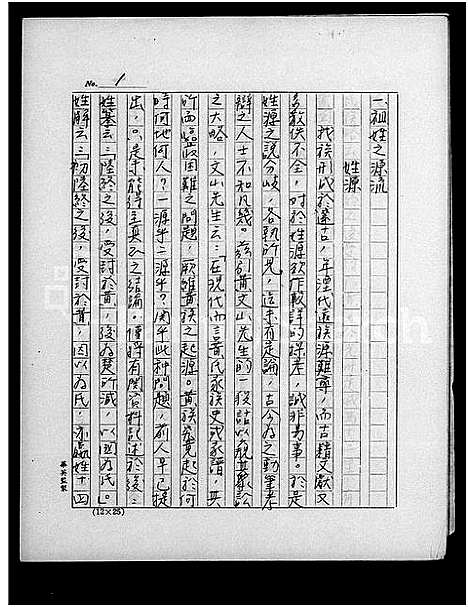 No. 1
一、祖姓之源流
姓源
我族形氏於遠古，年湮代遠族源難尋，而古籍文獻又
多散佚不全，對於姓源欲作較詳的探考，誠非易事。於是
姓源之說分岐，各執所見，迄未有定論，古今為之動筆考
辯之人士不知凡幾。茲引黃文山先生的一段話以窺其聚訟
之大略，文山先生云：「在現代而言黃氏家族史或家譜，其
所面臨最困難之問題，厥維黃族之起源。黃族究竟起於何
時何地何人？一源乎二源乎？關乎此種問題，前人早已提
出，」是乎能得至真公之結論。僅將有關資料記述於後：
姓纂云：「陸終之後，受封於黃，後為楚所滅，以國為氏。」
姓解云：「初陸終之後，受封於黃，因以為氏，亦嬴姓十四
(12×25)